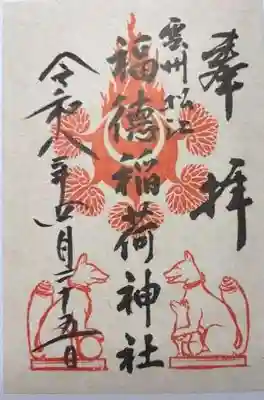 奉拝
雲州松江
福徳稲荷神社
令和八年月二十五日